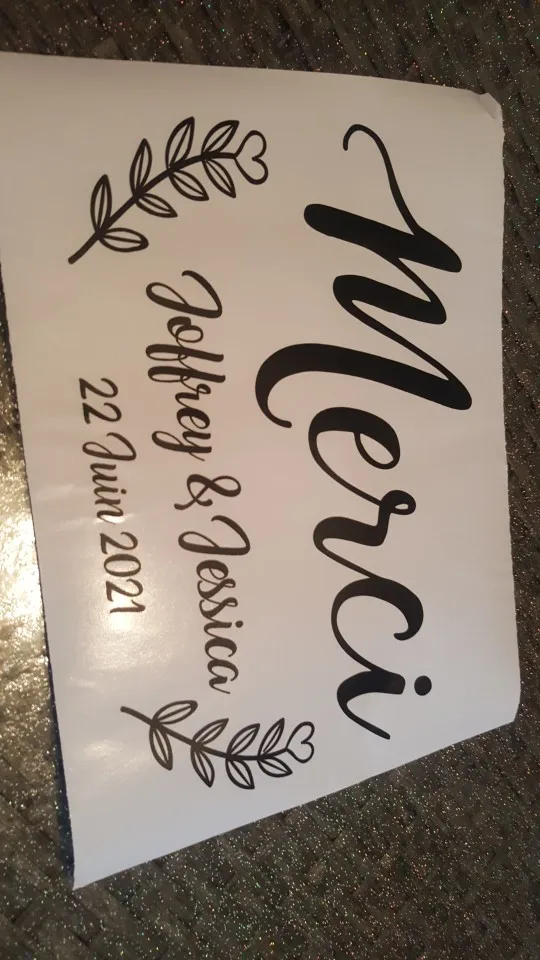 Merci
Joffrey & Jessica
22 Juin 2021